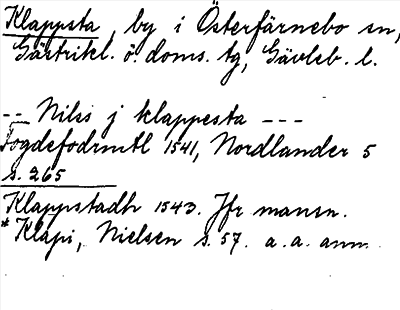 Klappsta, by i Österfärnebo sn,
Gästrikl. ö. doms. tg, Gävleb. l.
-- Nilss j klappesta ---
Fogdefodrmtl 1541, Nordlander 5
s. 265
Klappstadh 1543. Jfr mansn.
*Klapi, Nielsen s. 57. a.a. anm.